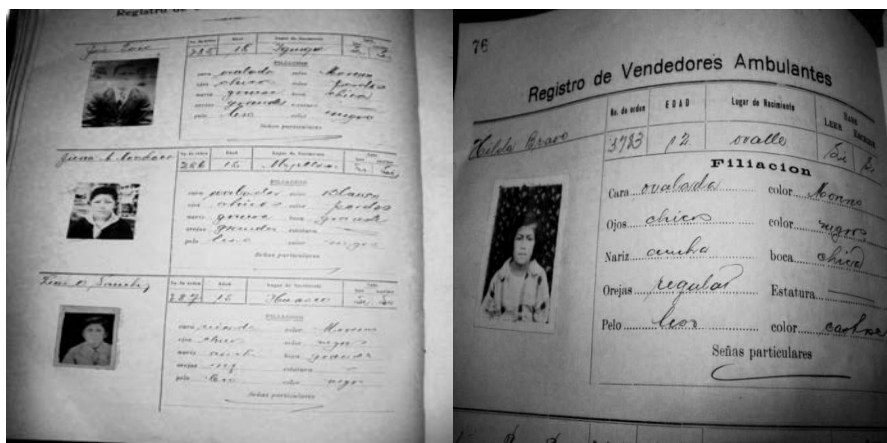 Registro de
No. de orden Edad Lugar de Nacimiento
285 15
FILIACION
cara ovalada color Moreno
ojos chicos color pardos
nariz gruesa boca chica
orejas grandes estatura
pelo liso color negro
Señas particulares
No. de orden Edad Lugar de Nacimiento
286 15
FILIACION
cara ovalada color Blanco
ojos chicos color pardos
nariz gruesa boca grande
orejas grandes estatura
pelo liso color negro
Señas particulares
No. de orden Edad Lugar de Nacimiento
287 15 Huasco
FILIACION
cara color Moreno
ojos chicos color negros
nariz ancha boca grande
orejas estatura
pelo liso color negro
Señas particulares
76
Registro de Vendedores Ambulantes
No. de orden EDAD Lugar de Nacimiento SABE
LEER ESCRIBIR
Hilda Bravo 3723 12 ovalle Si Si
Filiacion
Cara ovalada color Moreno
Ojos chicos color negros
Nariz ancha boca chica
Orejas regular Estatura
Pelo liso color castaño
Señas particulares